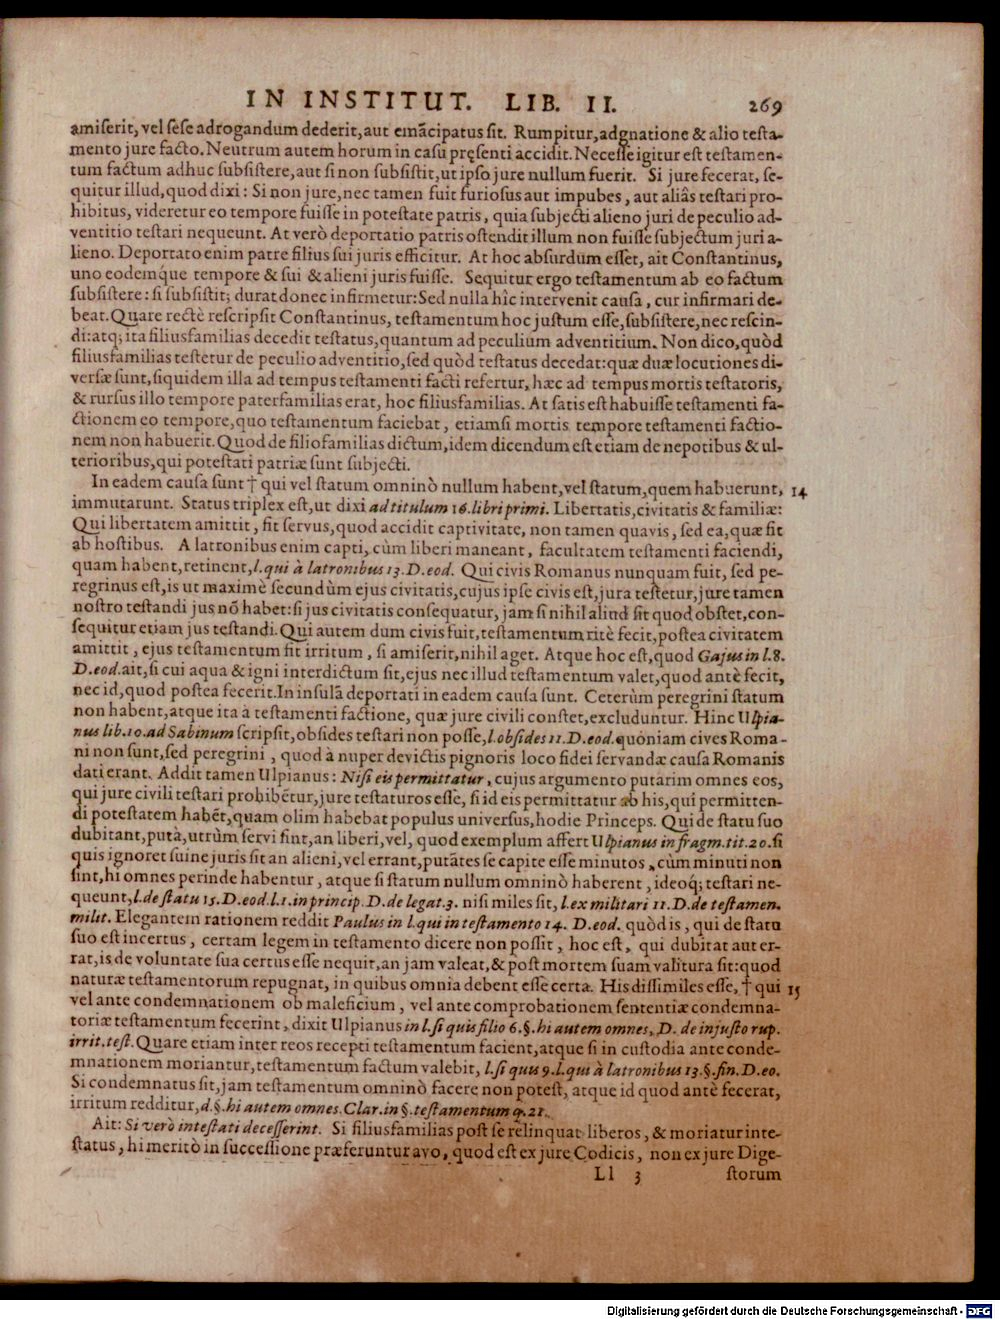 IN INSTITUT. LIB. II. 269
amiſerit, vel ſeſe adrogandum dederit, aut emãcipatus ſit. Rumpitur, adgnatione & alio teſta-
mento jure facto. Neutrum autem horum in caſu pręſenti accidit. Neceſſe igitur eſt teſtamen-
tum factum adhuc ſubſiſtere, aut ſi non ſubſiſtit, ut ipſo jure nullum fuerit. Si jure fecerat, ſe-
quitur illud, quod dixi: Si non jure, nec tamen fuit furioſus aut impubes, aut aliâs teſtari pro-
hibitus, videretur eo tempore fuiſſe in poteſtate patris, quia ſubjecti alieno juri de peculio ad-
ventitio teſtari nequeunt. At verò deportatio patris oſtendit illum non fuiſſe ſubjectum juri a-
lieno. Deportato enim patre filius ſui juris efficitur. At hoc abſurdum eſſet, ait Conſtantinus,
uno eodemque tempore & ſui & alieni juris fuiſſe. Sequitur ergo teſtamentum ab eo factum
ſubſiſtere: ſi ſubſiſtit; durat donec infirmetur: Sed nulla hîc intervenit cauſa, cur infirmari de-
beat. Quare rectè reſcripſit Conſtantinus, teſtamentum hoc juſtum eſſe, ſubſiſtere, nec reſcin-
di: atq; ita filiusfamilias decedit teſtatus, quantum ad peculium adventitium. Non dico, quòd
filiusfamilias teſtetur de peculio adventitio, ſed quòd teſtatus decedat: quæ duæ locutiones di-
verſæ ſunt, ſiquidem illa ad tempus teſtamenti facti refertur, hæc ad tempus mortis teſtatoris,
& rurſus illo tempore paterfamilias erat, hoc filiusfamilias. At ſatis eſt habuiſſe teſtamenti fa-
ctionem eo tempore, quo teſtamentum faciebat, etiamſi mortis tempore teſtamenti factio-
nem non habuerit. Quod de filiofamilias dictum, idem dicendum eſt etiam de nepotibus & ul-
terioribus, qui poteſtati patriæ ſunt ſubjecti.
In eadem cauſa ſunt † qui vel ſtatum omninò nullum habent, vel ſtatum, quem habuerunt, 14
immutarunt. Status triplex eſt, ut dixi ad titulum 16. libri primi. Libertatis, civitatis & familiæ:
Qui libertatem amittit, fit ſervus, quod accidit captivitate, non tamen quavis, ſed ea, quæ fit
ab hoſtibus. A latronibus enim capti, cùm liberi maneant, facultatem teſtamenti faciendi,
quam habent, retinent, l. qui à latronibus 13. D. eod. Qui civis Romanus nunquam fuit, ſed pe-
regrinus eſt, is ut maximè ſecundùm ejus civitatis, cujus ipſe civis eſt, jura teſtetur, jure tamen
noſtro teſtandi jus nõ habet: ſi jus civitatis conſequatur, jam ſi nihil aliud ſit quod obſtet, con-
ſequitur etiam jus teſtandi. Qui autem dum civis fuit, teſtamentum ritè fecit, poſtea civitatem
amittit, ejus teſtamentum fit irritum, ſi amiſerit, nihil aget. Atque hoc eſt, quod Gajus in l. 8.
D. eod. ait, ſi cui aqua & igni interdictum ſit, ejus nec illud teſtamentum valet, quod antè fecit,
nec id, quod poſtea fecerit. In inſulã deportati in eadem cauſa ſunt. Ceterùm peregrini ſtatum
non habent, atque ita à teſtamenti factione, quæ jure civili conſtet, excluduntur. Hinc Ulpia-
nus lib. 10. ad Sabinum ſcripſit, obſides teſtari non poſſe, l. obſides 11. D. eod. quoniam cives Roma-
ni non ſunt, ſed peregrini, quod à nuper devictis pignoris loco fidei ſervandæ cauſa Romanis
dati erant. Addit tamen Ulpianus: Niſi eis permittatur, cujus argumento putarim omnes eos,
qui jure civili teſtari prohibẽtur, jure teſtaturos eſſe, ſi id eis permittatur ab his, qui permitten-
di poteſtatem habẽt, quam olim habebat populus univerſus, hodie Princeps. Qui de ſtatu ſuo
dubitant, putà, utrùm ſervi ſint, an liberi, vel, quod exemplum affert Ulpianus in fragm. tit. 20. ſi
quis ignoret ſuine juris ſit an alieni, vel errant, putãtes ſe capite eſſe minutos, cùm minuti non
ſint, hi omnes perinde habentur, atque ſi ſtatum nullum omninò haberent, ideoq; teſtari ne-
queunt, l. de ſtatu 15. D. eod. l. 1. in princip. D. de legat. 3. niſi miles ſit, l. ex militari 11. D. de teſtamen.
milit. Elegantem rationem reddit Paulus in l. qui in teſtamento 14. D. eod. quòd is, qui de ſtatu
ſuo eſt incertus, certam legem in teſtamento dicere non poſſit, hoc eſt, qui dubitat aut er-
rat, is de voluntate ſua certus eſſe nequit, an jam valeat, & poſt mortem ſuam valitura ſit: quod
naturæ teſtamentorum repugnat, in quibus omnia debent eſſe certa. His diſſimiles eſſe, † qui 15
vel ante condemnationem ob maleficium, vel ante comprobationem ſententiæ condemna-
toriæ teſtamentum fecerint, dixit Ulpianus in l. ſi quis filio 6. §. hi autem omnes, D. de injuſto rup.
irrit. teſt. Quare etiam inter reos recepti teſtamentum facient, atque ſi in cuſtodia ante conde-
mnationem moriantur, teſtamentum factum valebit, l. ſi quis 9. l. qui à latronibus 13. §. fin. D. eo.
Si condemnatus ſit, jam teſtamentum omninò facere non poteſt, atque id quod antè fecerat,
irritum redditur, d. §. hi autem omnes. Clar. in §. teſtamentum q. 21.
Ait: Si verò inteſtati deceſſerint. Si filiusfamilias poſt ſe relinquat liberos, & moriatur inte-
ſtatus, hi meritò in ſucceſſione præferuntur avo, quod eſt ex jure Codicis, non ex jure Dige-
Ll 3 ſtorum
Digitalisierung gefördert durch die Deutsche Forschungsgemeinschaft - DFG